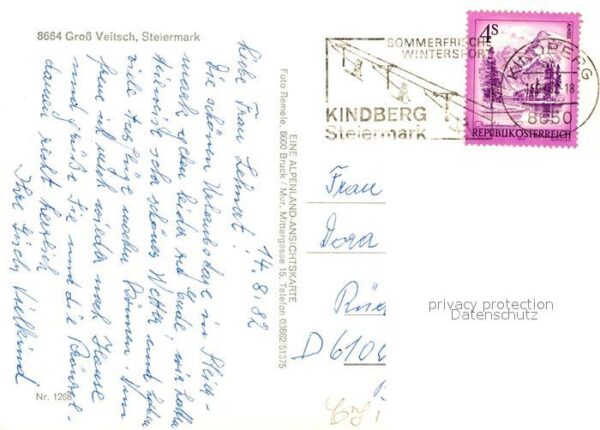 8664 Groß Veitsch, Steiermark
14.8.82
Liebe Frau Lehnert!
Die schönen Urlaubstage in Steier-
mark gehen leider zu Ende, wir hatten
teilweise sehr schönes Wetter und haben
viele Ausflüge machen können. Nun
freue ich mich wieder nach Hause
und grüße Sie und die
damen recht herzlich
Ihre
Nr. 1268
EINE ALPENLAND-ANSICHTSKARTE
Foto Remele, 8600 Bruck / Mur, Mittergasse 15, Telefon 03862/51375
SOMMERFRISCHE
WINTERSPORT
KINDBERG
Steiermark
4S
REPUBLIK ÖSTERREICH
KINDBERG
8650
Frau
Dora
D 610
privacy protection
Datenschutz